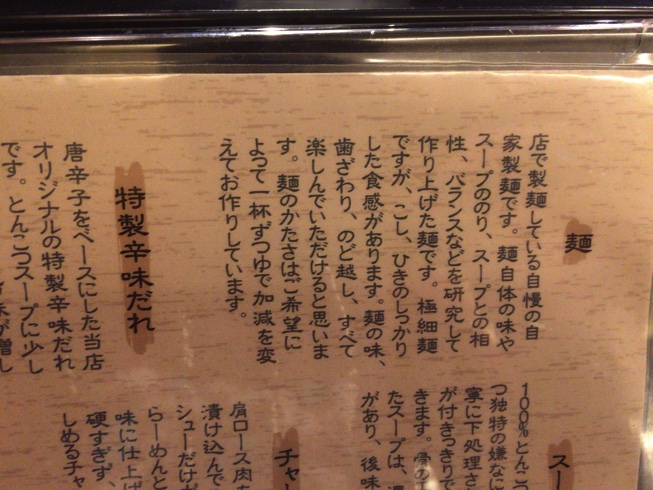 麺
店で製麺している自慢の自
家製麺です。麺自体の味や
スープののり、スープとの相
性、バランスなどを研究して
作り上げた麺です。極細麺
ですが、こし、ひきのしっかり
した食感があります。麺の味、
歯ざわり、のど越し、すべて
楽しんでいただけると思いま
す。麺のかたさはご希望に
よって一杯ずつゆで加減を変
えてお作りしています。
特製辛味だれ
唐辛子をベースにした当店
オリジナルの特製辛味だれ
です。とんこつスープに少し
が増し
スー
100%とんこつ
つ独特の嫌なに
寧に下処理さ
が付きっきりで
きます。骨の
たスープは、濃
があり、後味
チャー
肩ロース肉を
漬け込んで
シューだけが
らーめんと
味に仕上げ
硬すぎず、
しめるチャ